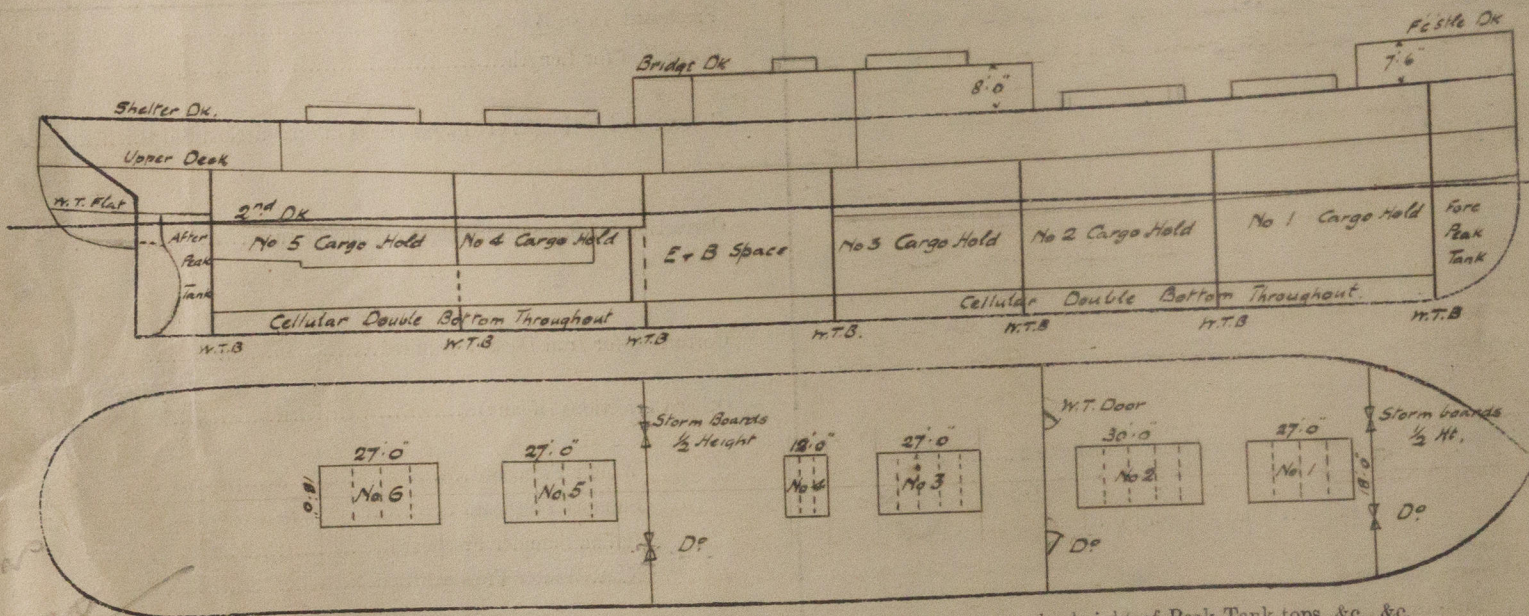 F'castle Dk
7'-6"
Bridge Dk
8'-0"
Shelter Dk.
Upper Deck
W.T. Flat
2nd Dk
After Peak Tank
No 5 Cargo Hold
No 4 Cargo Hold
E & B Space
No 3 Cargo Hold
No 2 Cargo Hold
No 1 Cargo Hold
Fore Peak Tank
Cellular Double Bottom Throughout
Cellular Double Bottom Throughout.
W.T.B
W.T.B
W.T.B
W.T.B.
W.T.B
W.T.B
W.T.B
Storm Boards
½ Height
W.T. Door
Storm boards
½ Ht.
27'-0"
27'-0"
12'-0"
27'-0"
30'-0"
27'-0"
18'-0"
No 6
No 5
No 4
No 3
No 2
No 1
18'-0"
Do
Do
Do
height of Peak Tank tops, &c., &c.